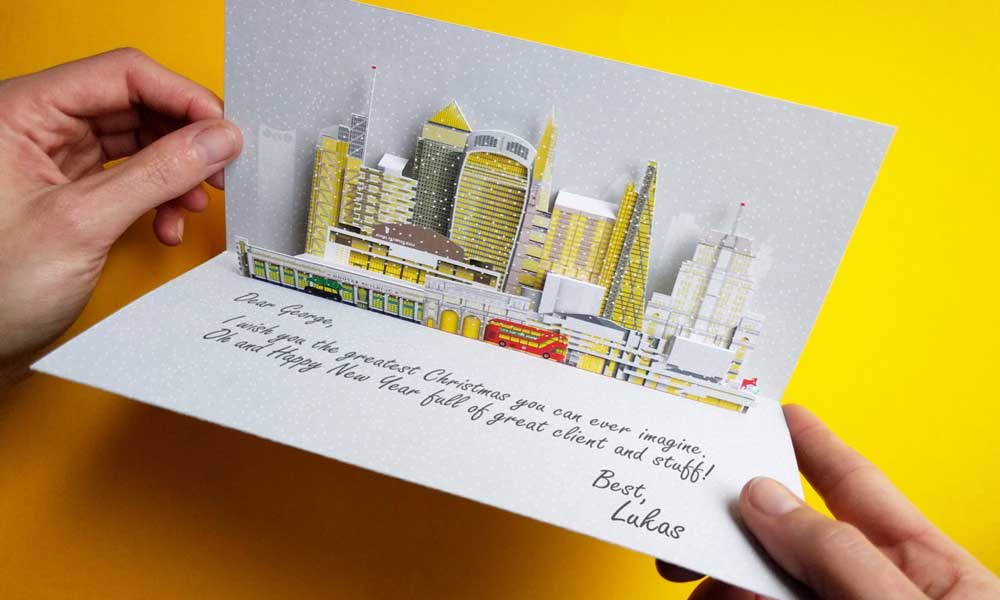 HOOVER BUILDING
Dear George,
I wish you the greatest Christmas you can ever imagine.
Oh and Happy New Year full of great client and stuff!
Best,
Lukas